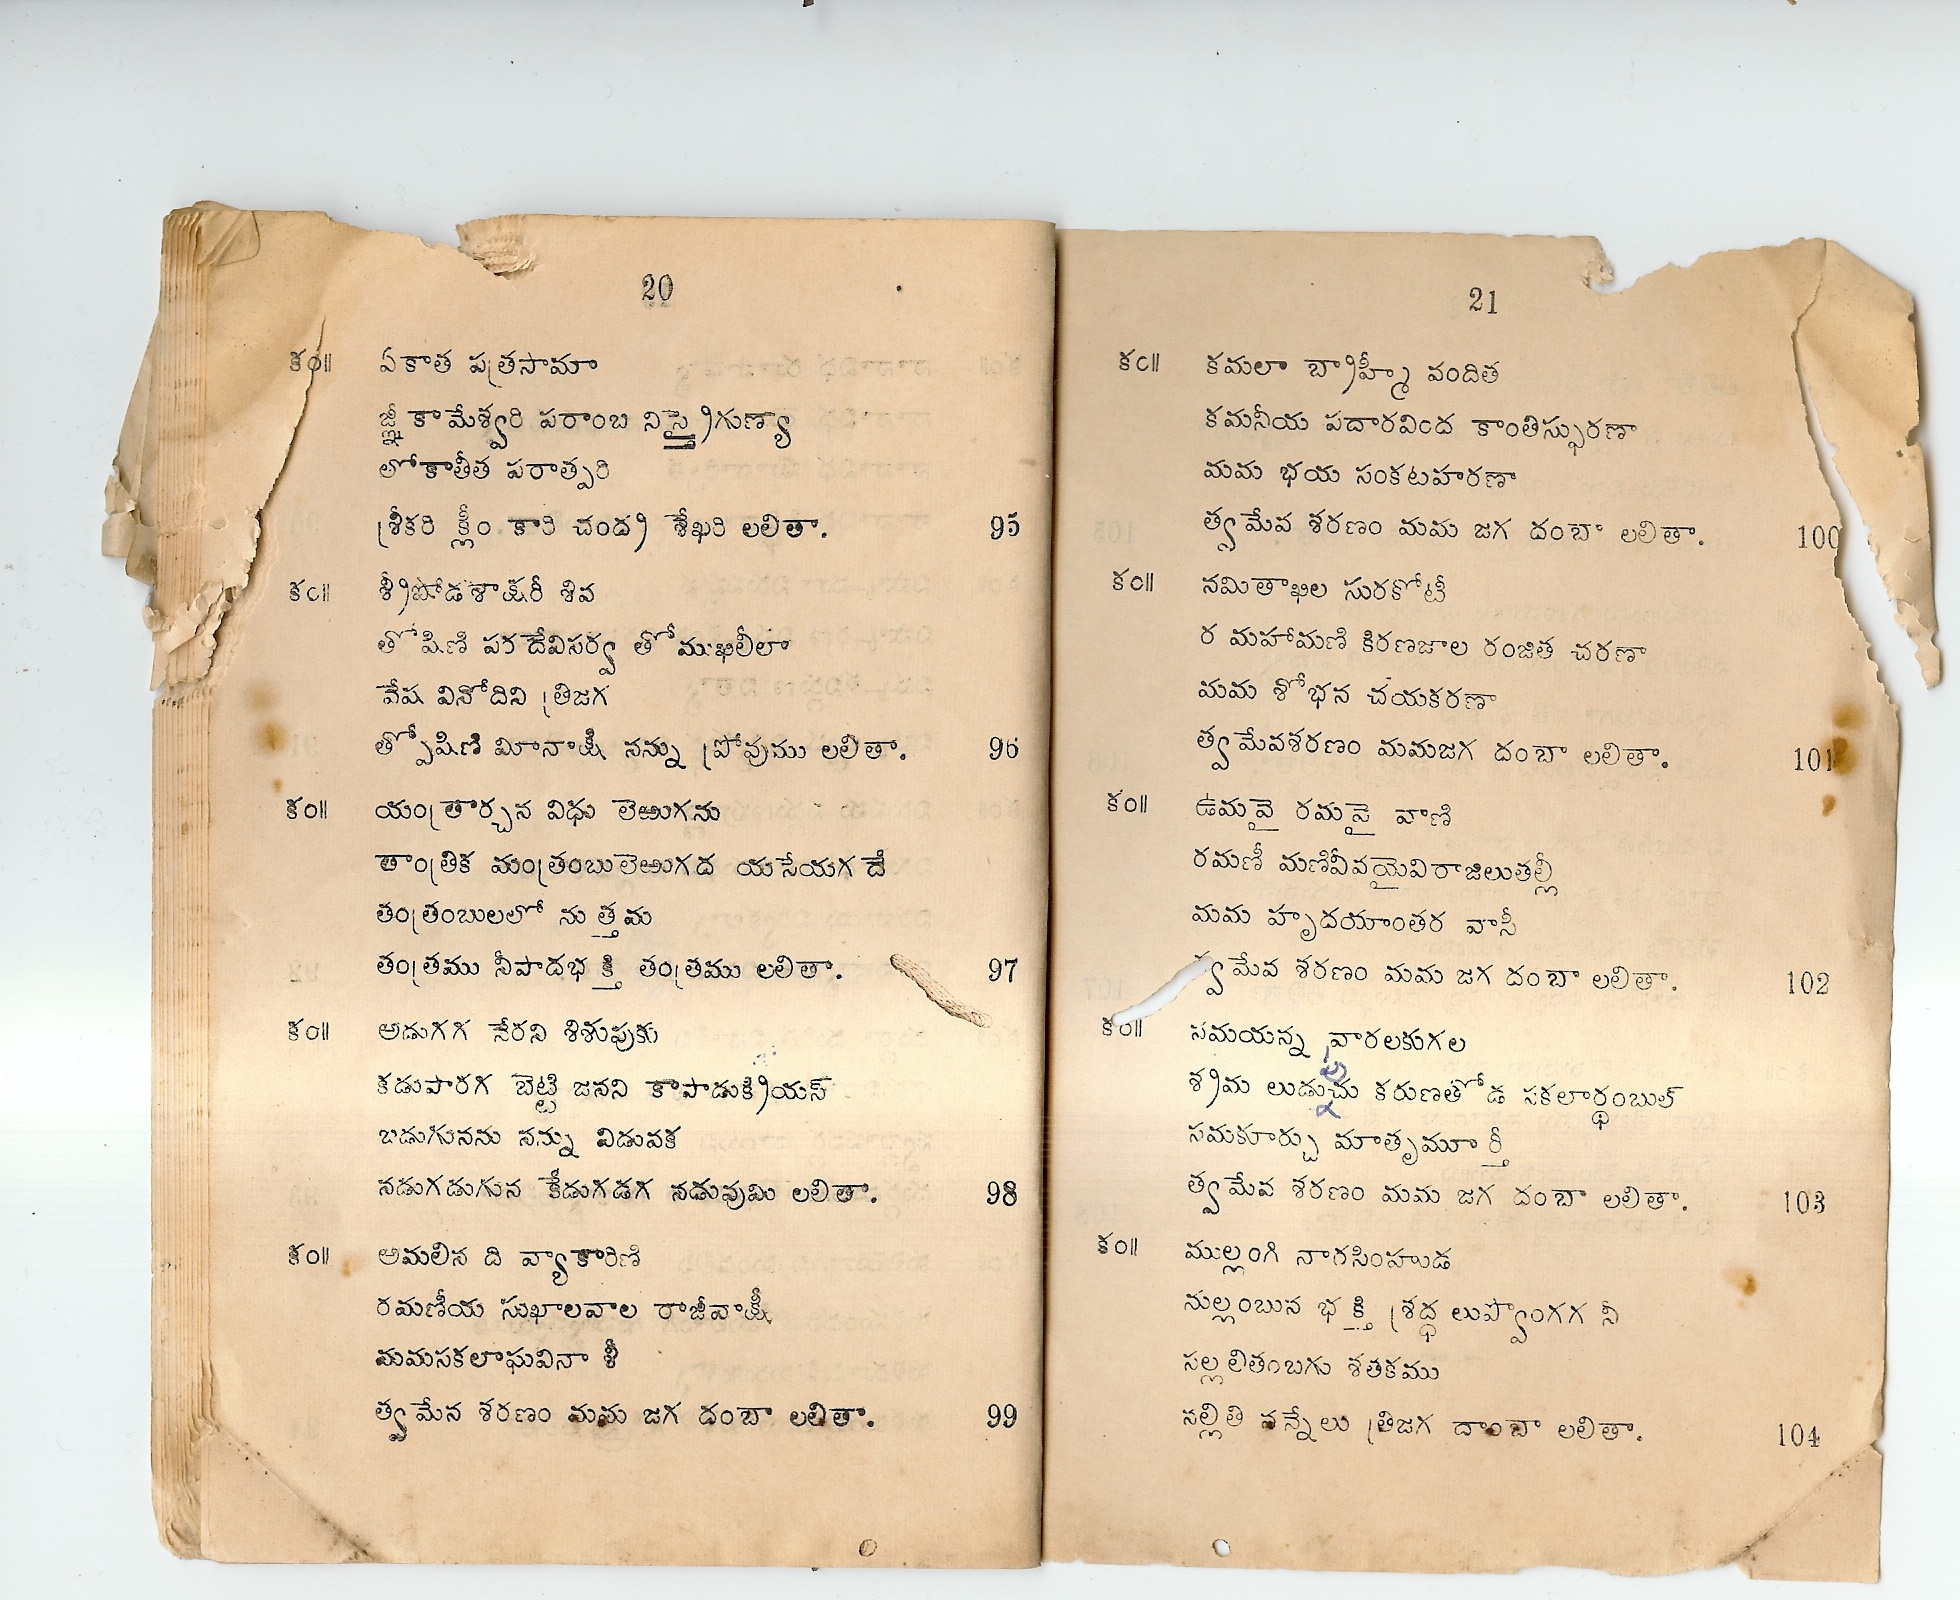 20
కం॥ ఏకాత పత్రసామ్రా
జ్ఞీ కామేశ్వరి పరాంబ నిస్త్రైగుణ్యా
లోకాతీత పరాత్పరి
శ్రీకరి క్లీం కారి చంద్ర శేఖరి లలితా. 95
కం॥ శ్రీషోడశాక్షరీ శివ
తోషిణి పరదేవిసర్వ తోముఖలీలా
వేష వినోదిని త్రిజగ
త్పోషిణి మీనాక్షి నన్ను ప్రోవుము లలితా. 96
కం॥ యంత్రార్చన విధు లెఱుగను
తాంత్రిక మంత్రంబులెఱుగద యసేయగ దే
తంత్రంబులలో ను త్తమ
తంత్రము నీపాదభ క్తి తంత్రము లలితా. 97
కం॥ అడుగగ నేరని శిశువుకు
కడుపారగ బెట్టి జనని కాపాడుక్రియన్
బడుగునను నన్ను విడువక
నడుగడుగున కేడుగడగ నడువుమి లలితా. 98
కం॥ అమలిన ది వ్యాకారిణి
రమణీయ సుఖాలవాల రాజీవాక్షీ
మమసకలాఘవినా శీ
త్వ మేన శరణం మమ జగ దంబా లలితా. 99
21
కం॥ కమలా బ్రాహ్మీ వందిత
కమనీయ పదారవింద కాంతిస్ఫురణా
మమ భయ సంకటహరణా
త్వ మేవ శరణం మమ జగ దంబా లలితా. 100
కం॥ నమితాఖిల సురకోటీ
ర మహామణి కిరణజాల రంజిత చరణా
మమ శోభన చయకరణా
త్వ మేవశరణం మమజగ దంబా లలితా. 101
కం॥ ఉమవై రమవై వాణి
రమణీ మణివీవయైవిరాజిలుతల్లీ
మమ హృదయాంతర వాసీ
త్వ మేవ శరణం మమ జగ దంబా లలితా. 102
కం॥ సమయన్న వ్రారలకుగల
శ్రమ లుడుచు కరుణతోడ సకలార్థంబుల్
సమకూర్చు మాతృమూ ర్తీ
త్వ మేవ శరణం మమ జగ దంబా లలితా. 103
కం॥ ముల్లంగి నాగసింహుడ
నుల్లంబున భ క్తి శ్రద్ధ లుప్పొంగగ నీ
సల్ల లితంబగు శతకము
నల్లితి నన్నేలు త్రిజగ దాంబా లలితా. 104